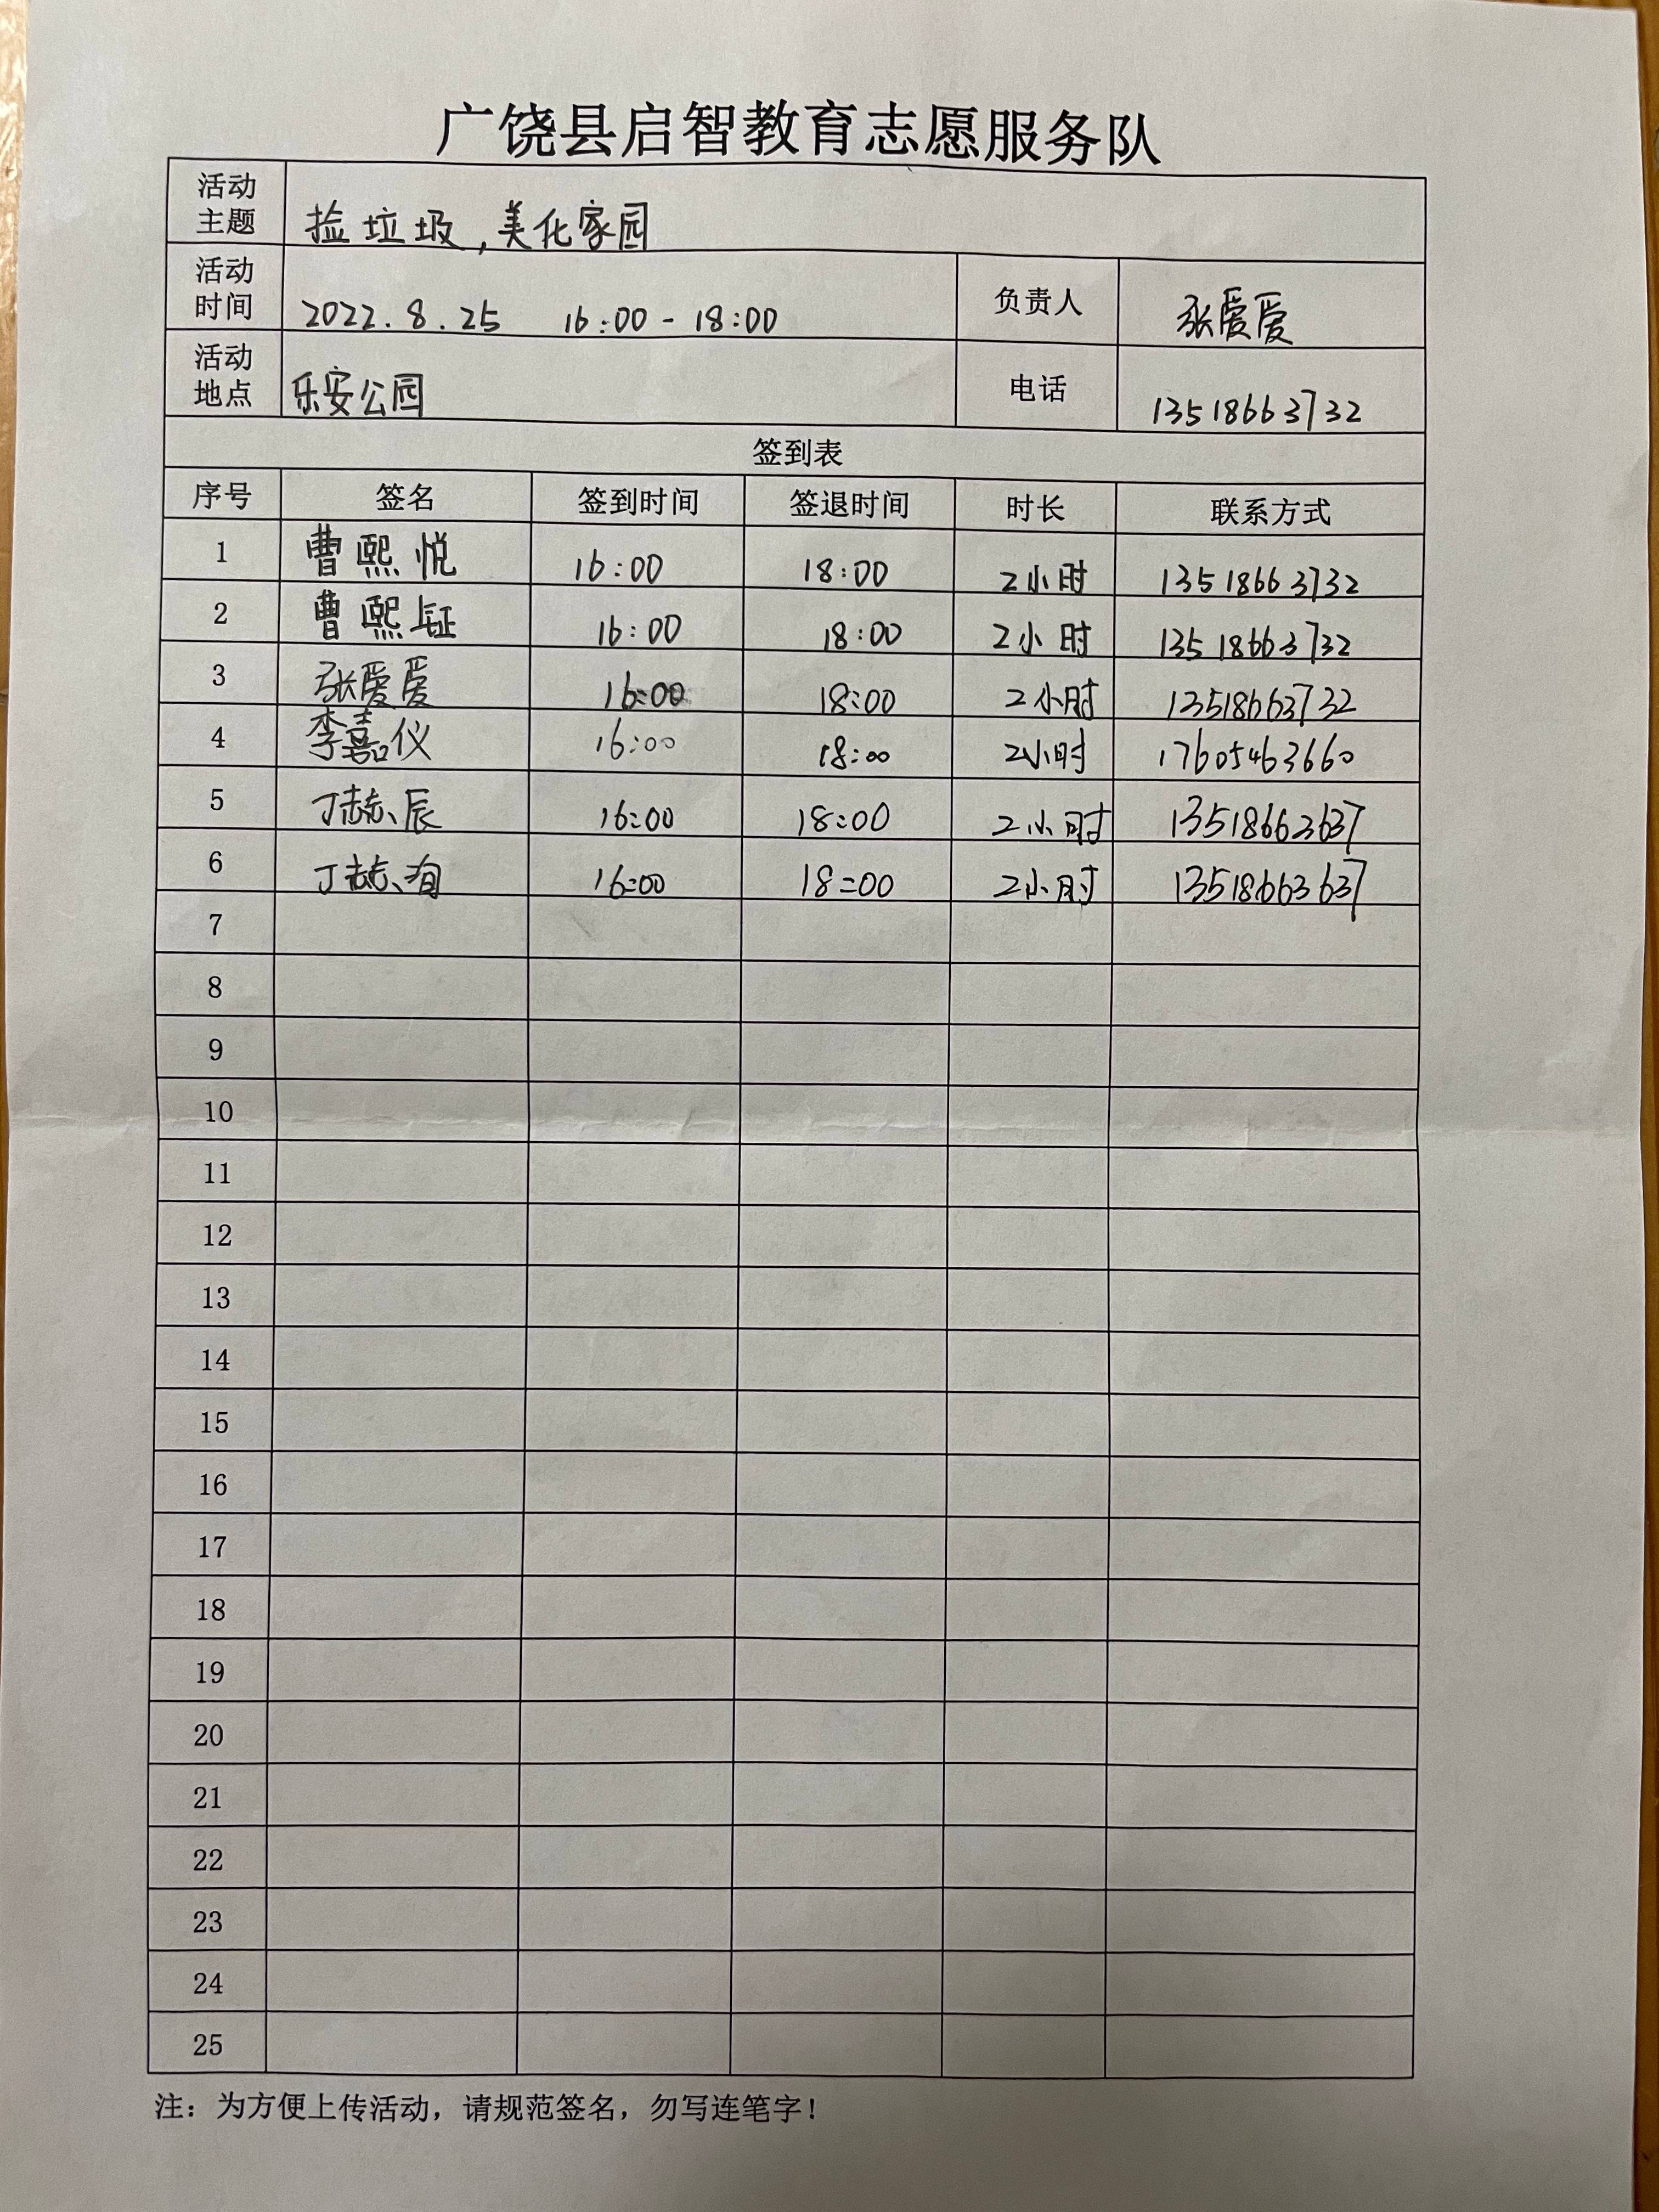 广饶县启智教育志愿服务队
活动主题 捡垃圾,美化家园
活动时间 2022.8.25 16:00-18:00 负责人 张爱爱
活动地点 乐安公园 电话 13518663732
签到表
序号 签名 签到时间 签退时间 时长 联系方式
1 曹熙悦 16:00 18:00 2小时 13518663732
2 曹熙 16:00 18:00 2小时 13518663732
3 张爱爱 16:00 18:00 2小时 13518663732
4 李嘉仪 16:00 18:00 2小时 17605463660
5 丁喆辰 16:00 18:00 2小时 13518663637
6 丁 16:00 18:00 2小时 13518663637
7
8
9
10
11
12
13
14
15
16
17
18
19
20
21
22
23
24
25
注：为方便上传活动，请规范签名，勿写连笔字！